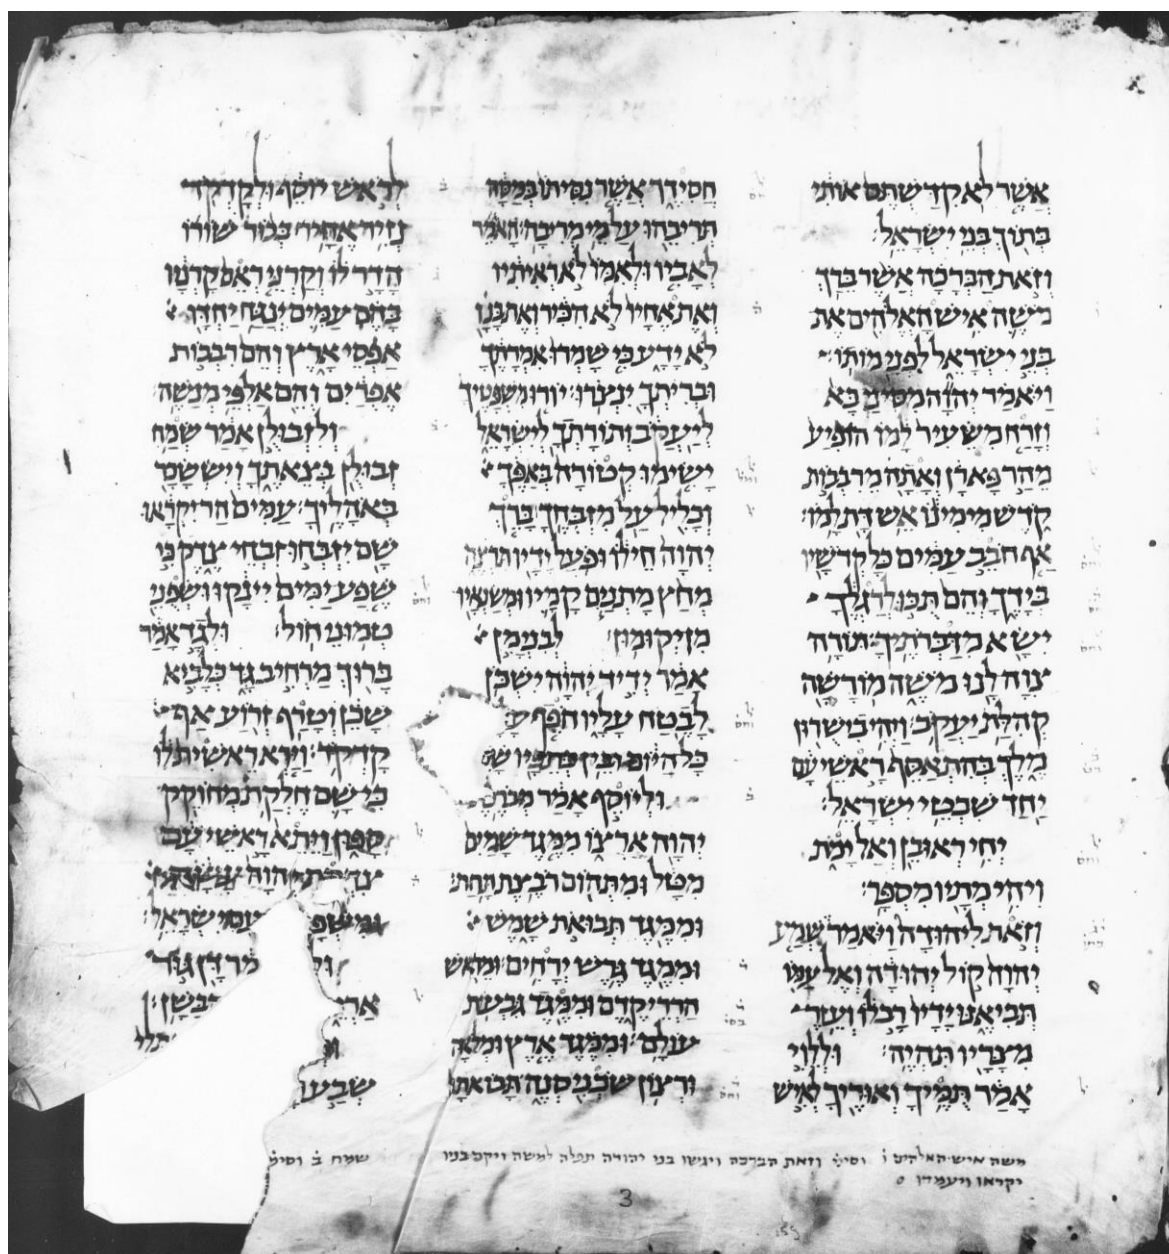 אשר לא קדשתם אותי
בתוך בני ישראל׃
וזאת הברכה אשר ברך
משה איש האלהים את
בני ישראל לפני מותו׃
ויאמר יהוה מסיני בא
וזרח משעיר למו הופיע
מהר פארן ואתה מרבבות
קדש מימינו אש דת למו׃
אף חבב עמים כל קדשיו
בידך והם תכו לרגלך
ישא מדברתיך׃ תורה
צוה לנו משה מורשה
קהלת יעקב׃ ויהי בישרון
מלך בהתאסף ראשי עם
יחד שבטי ישראל׃
יחי ראובן ואל ימת
ויהי מתיו מספר׃
וזאת ליהודה ויאמר שמע
יהוה קול יהודה ואל עמו
תביאנו ידיו רב לו ועזר
מצריו תהיה׃ וללוי
אמר תמיך ואוריך לאיש
חסידך אשר נסיתו במסה
תריבהו על מי מריבה׃ האמר
לאביו ולאמו לא ראיתיו
ואת אחיו לא הכיר ואת בנו
לא ידע כי שמרו אמרתך
ובריתך ינצרו׃ יורו משפטיך
ליעקב ותורתך לישראל
ישימו קטורה באפך
וכליל על מזבחך׃ ברך
יהוה חילו ופעל ידיו תרצה
מחץ מתנים קמיו ומשנאיו
מן יקומון׃ לבנימן
אמר ידיד יהוה ישכן
לבטח עליו חפף ע
כל היום ובין כתפיו ש
וליוסף אמר מברכת
יהוה ארצו ממגד שמים
מטל ומתהום רבצת תחת׃
וממגד תבואת שמש
וממגד גרש ירחים׃ ומראש
הררי קדם וממגד גבעת
עולם׃ וממגד ארץ ומלאה
ורצון שכני סנה תבואתה
לראש יוסף ולקדקד
נזיר אחיו׃ בכור שורו
הדר לו וקרני ראם קרניו
בהם עמים ינגח יחדו
אפסי ארץ והם רבבות
אפרים והם אלפי מנשה׃
ולזבולן אמר שמח
זבולן בצאתך ויששכר
באהליך׃ עמים הר יקראו
שם יזבחו זבחי צדק כי
שפע ימים יינקו ושפני
טמוני חול׃ ולגד אמר
ברוך מרחיב גד כלביא
שכן וטרף זרוע אף
קדקד׃ וירא ראשית לו
כי שם חלקת מחוקק
ספון ויתא ראשי עם
צדקת יהוה עשה
ומשפ עם ישראל׃
ול מר דן גור
ארי הבשן׃

שבע
משה איש האלהים ו̇ וסימ̇ וזאת הברכה ויגשו בני יהודה תפלה למשה ויקם בניו שמח ב̇ וסימ̇
יקראו ויעמדו
3